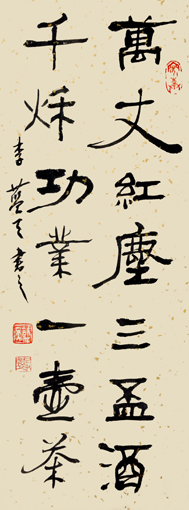 萬丈紅塵三盃酒
千秌功業一壺茶
李藍天書之